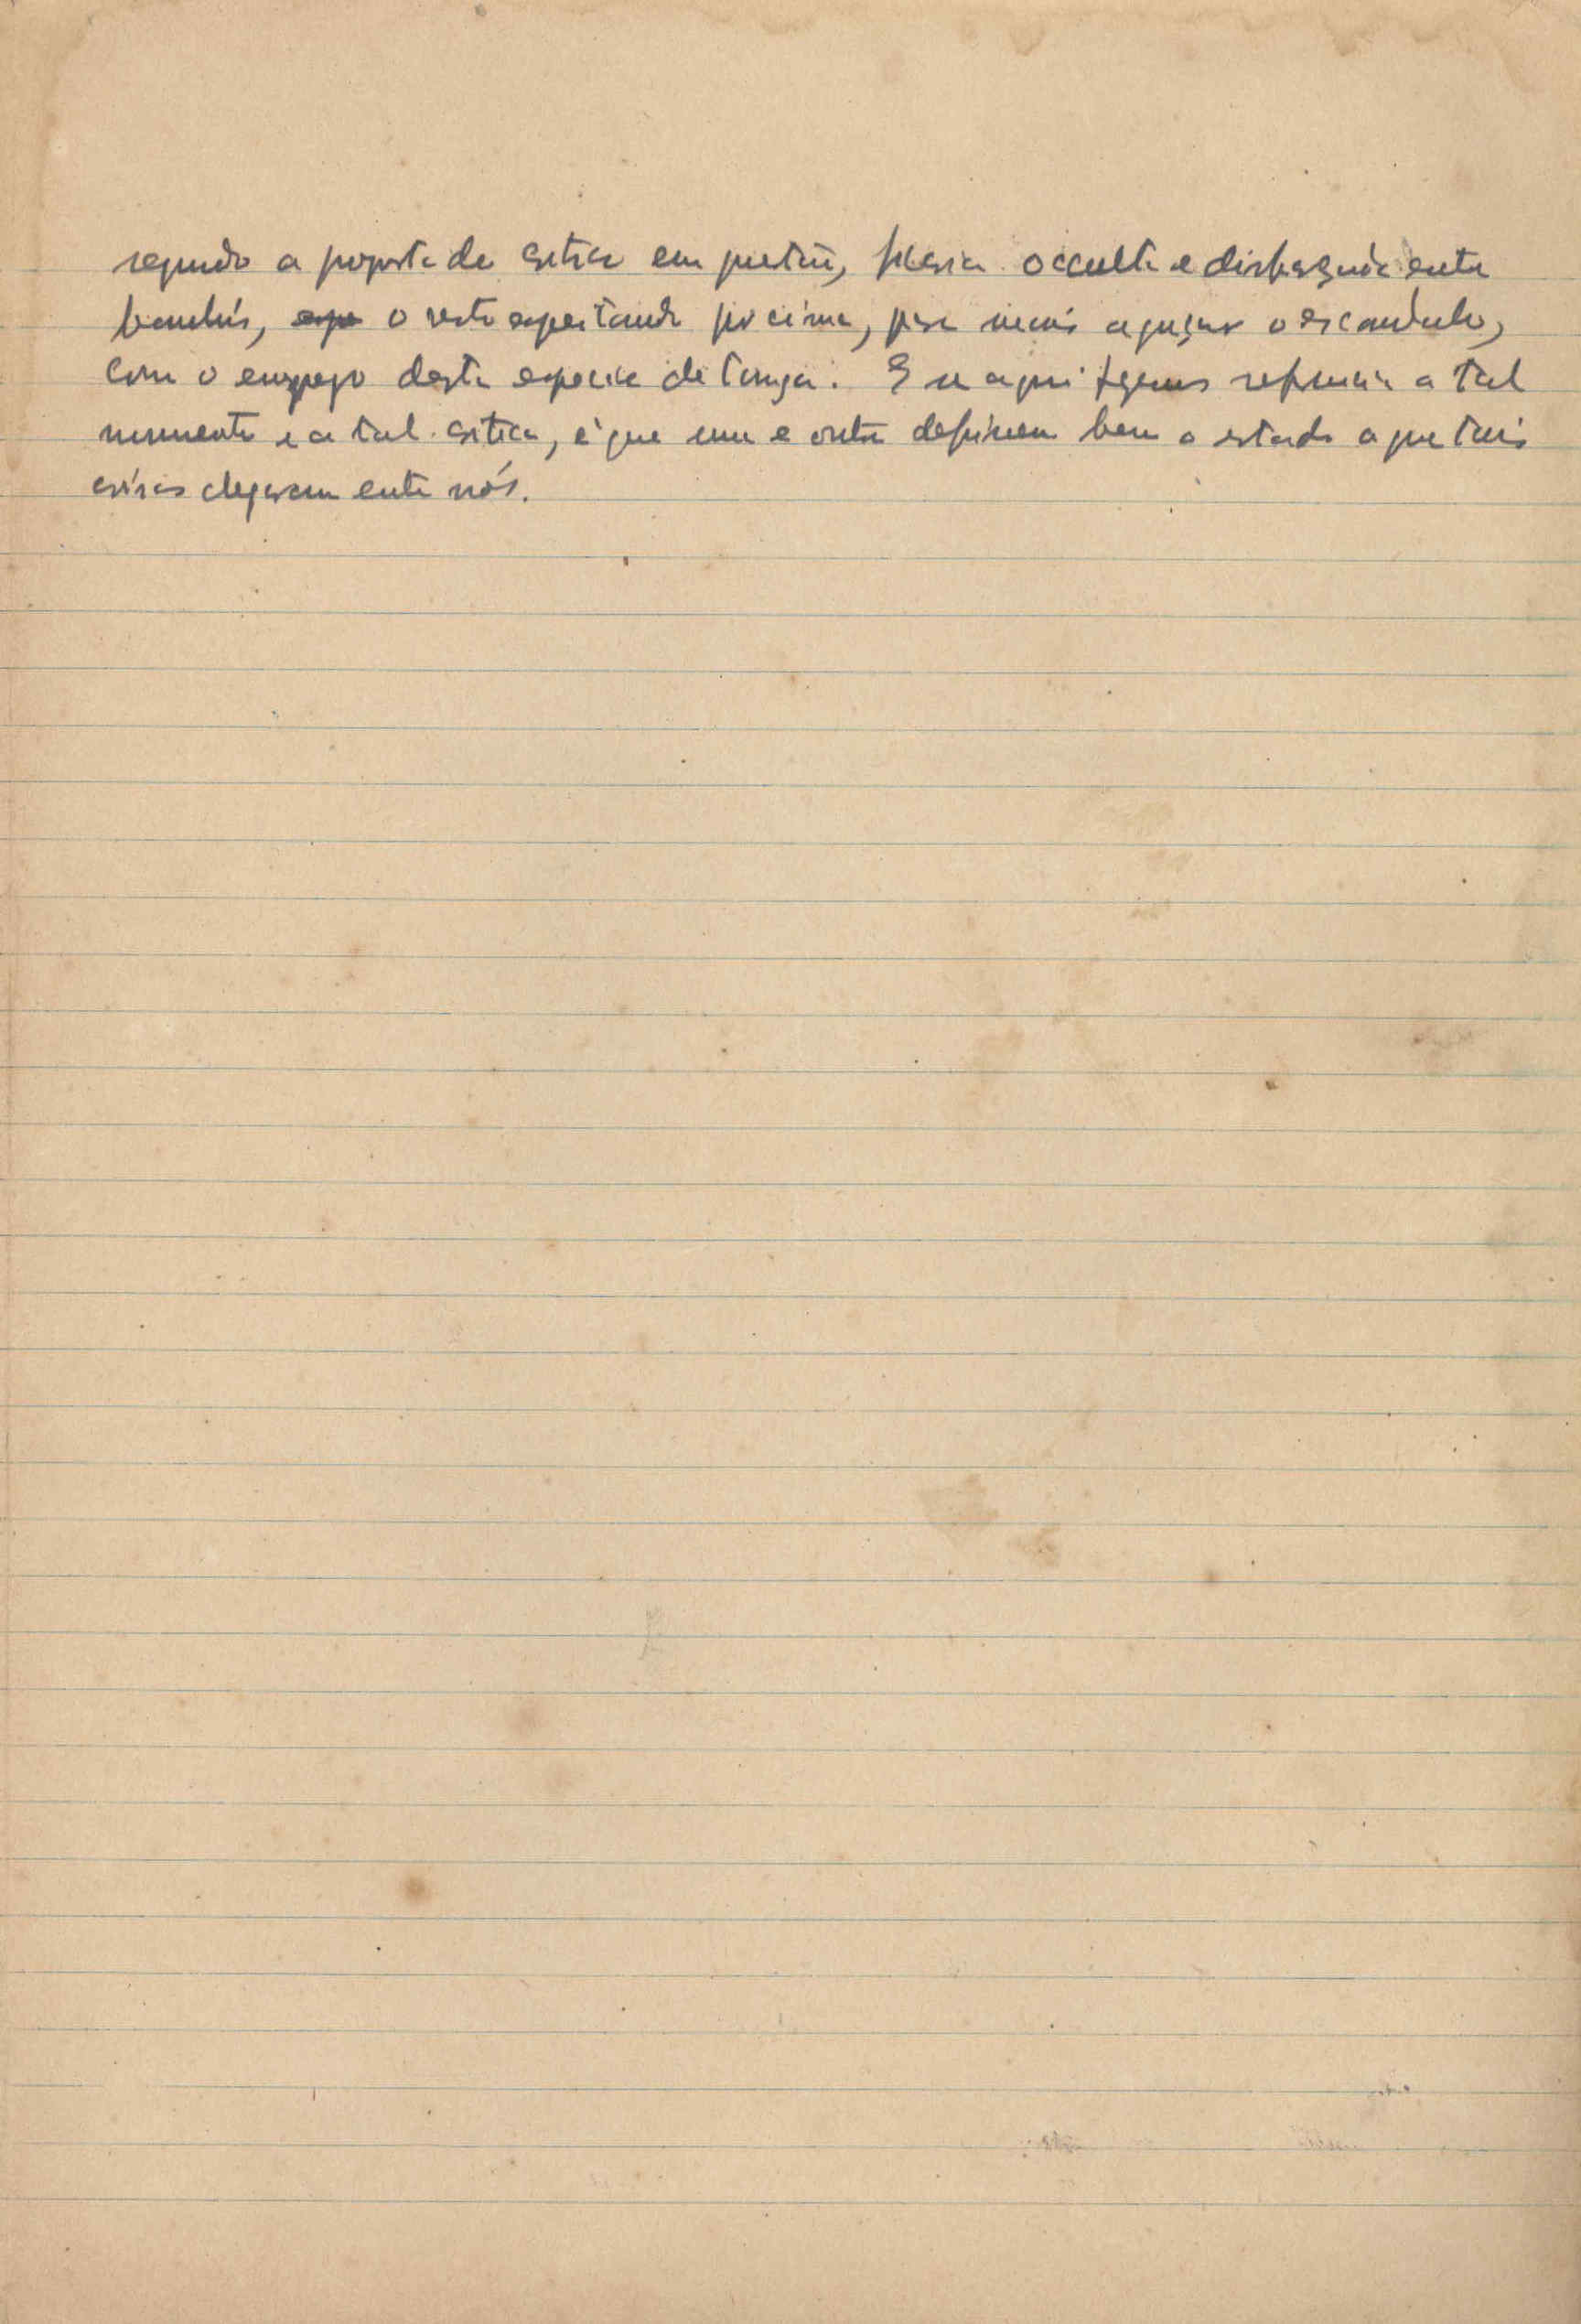 segundo a proposta da critica em questão, ficaria occulta e disfarçada entre
bambús, o resto espeitando por cima, para mais aguçar o escandalo,
com o emprego desta especie de tanga. E se aqui fazemos referencia a tal
monumento e a tal critica, é que um e outra definem bem o estado a que taes
coisas chegaram entre nós.